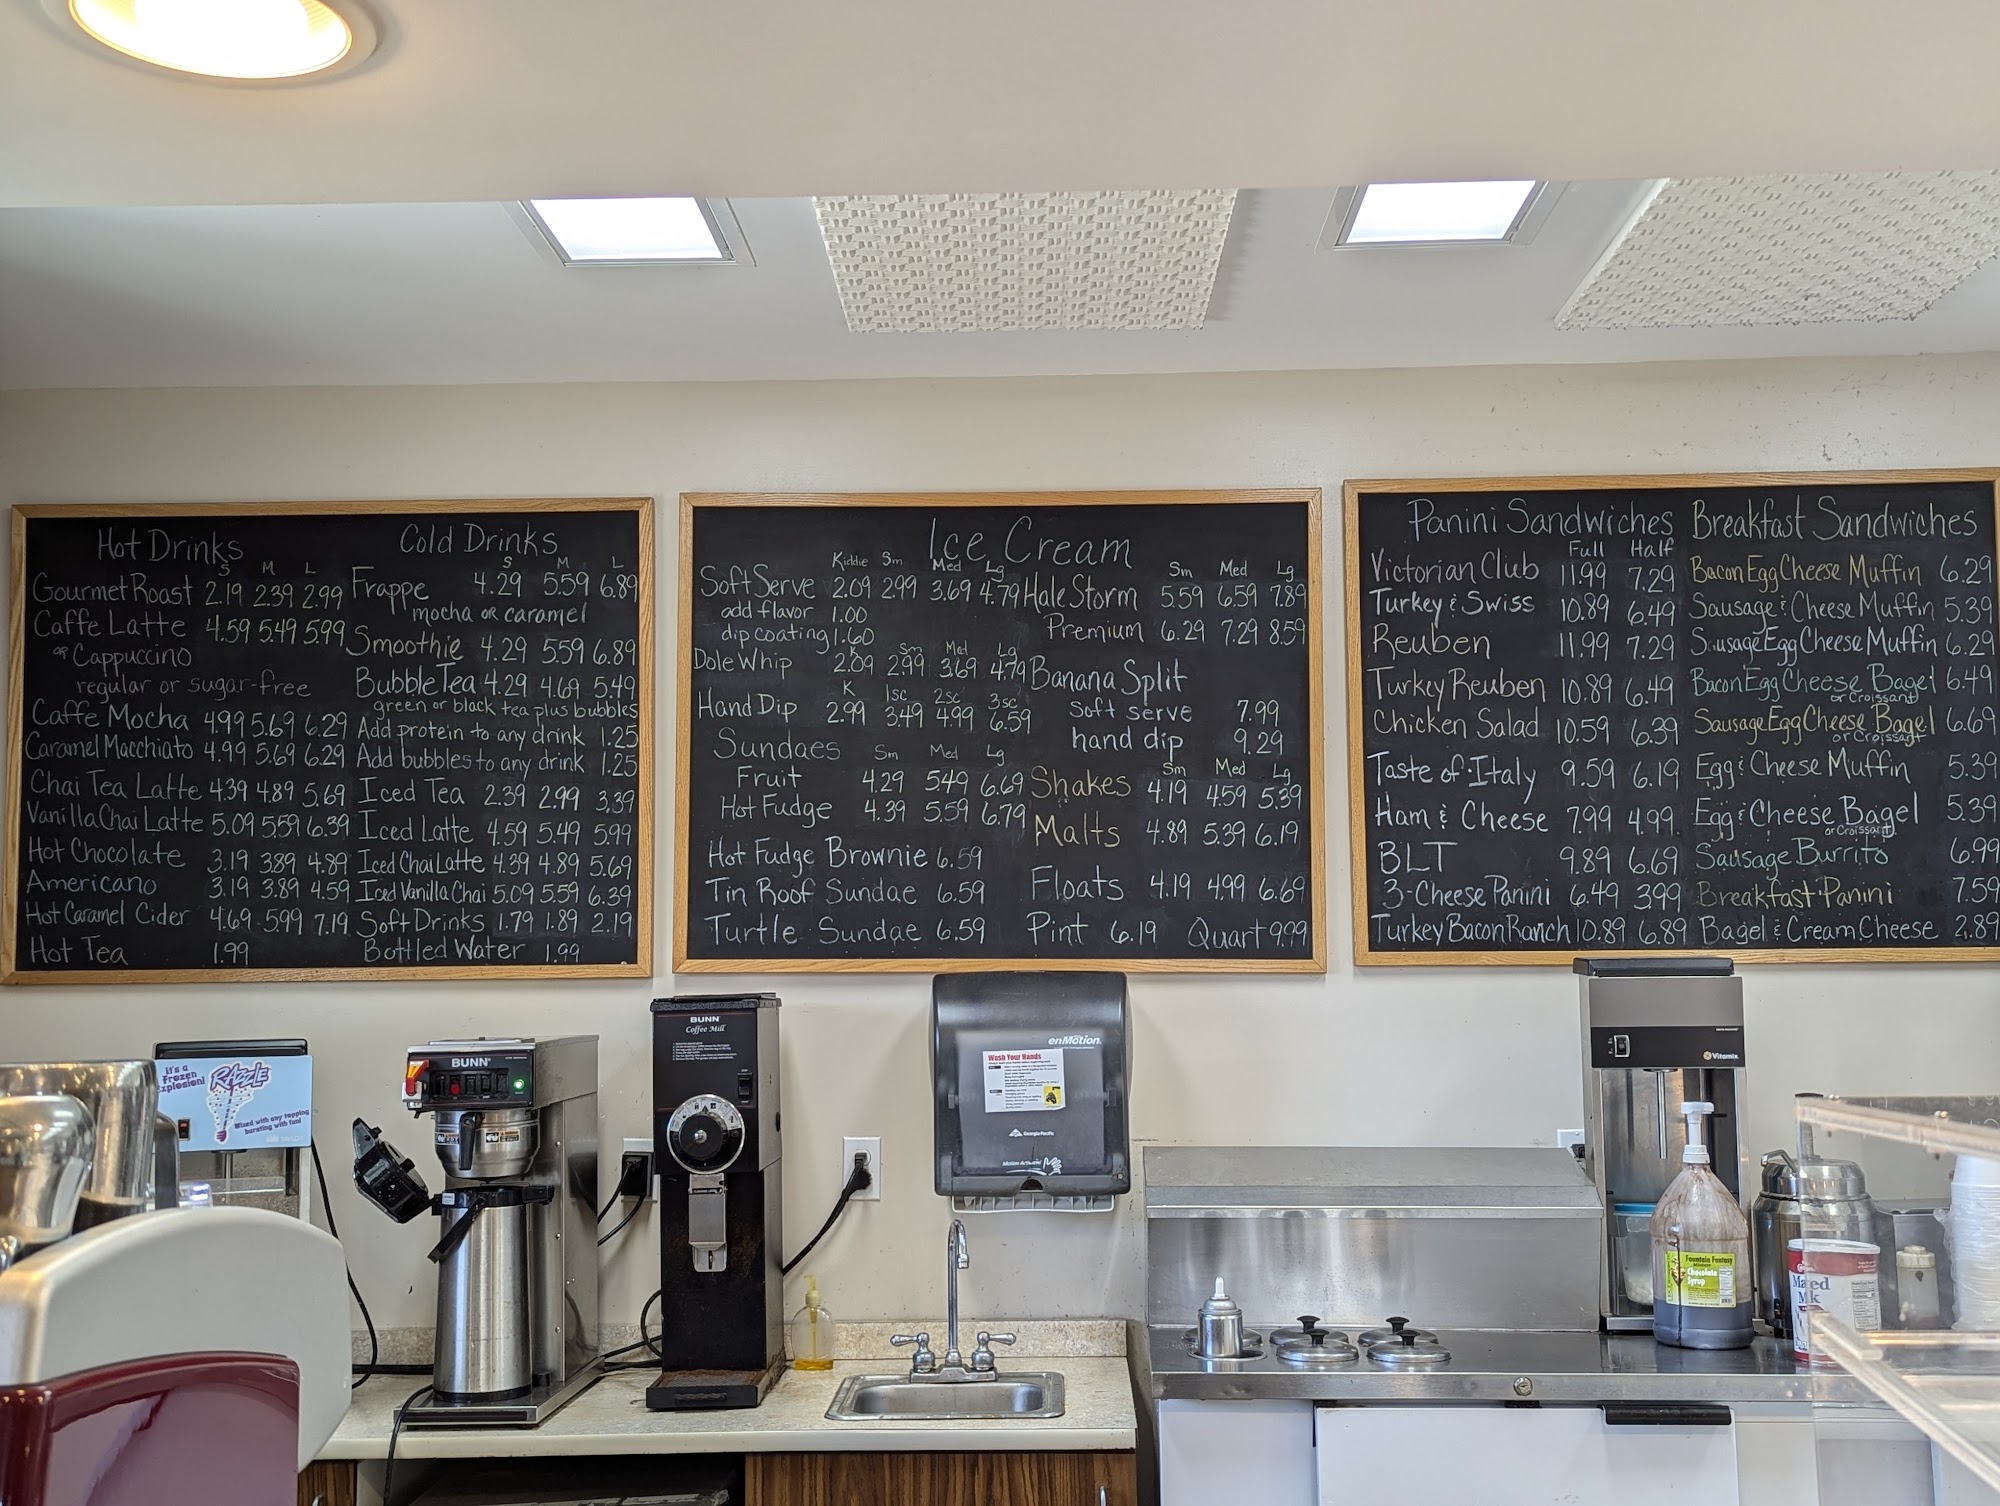 Hot Drinks
S M L
Gourmet Roast 2.19 2.39 2.99
Caffe Latte 4.59 5.49 5.99
or Cappuccino
regular or sugar-free
Caffe Mocha 4.99 5.69 6.29
Caramel Macchiato 4.99 5.69 6.29
Chai Tea Latte 4.39 4.89 5.69
Vanilla Chai Latte 5.09 5.59 6.39
Hot Chocolate 3.19 3.89 4.89
Americano 3.19 3.89 4.59
Hot Caramel Cider 4.69 5.99 7.19
Hot Tea 1.99
Cold Drinks
S M L
Frappe 4.29 5.59 6.89
mocha or caramel
Smoothie 4.29 5.59 6.89
Bubble Tea 4.29 4.69 5.49
green or black tea plus bubbles
Add protein to any drink 1.25
Add bubbles to any drink 1.25
Iced Tea 2.39 2.99 3.39
Iced Latte 4.59 5.49 5.99
Iced Chai Latte 4.39 4.89 5.69
Iced Vanilla Chai 5.09 5.59 6.39
Soft Drinks 1.79 1.89 2.19
Bottled Water 1.99
Ice Cream
Kiddie Sm Med Lg
Soft Serve 2.09 2.99 3.69 4.79
add flavor 1.00
dip coating 1.60
K Sm Med Lg
Dole Whip 2.09 2.99 3.69 4.79
K 1sc 2sc 3sc
Hand Dip 2.99 3.49 4.99 6.59
Sundaes Sm Med Lg
Fruit 4.29 5.49 6.69
Hot Fudge 4.39 5.59 6.79
Hot Fudge Brownie 6.59
Tin Roof Sundae 6.59
Turtle Sundae 6.59
Sm Med Lg
Hale Storm 5.59 6.59 7.89
Premium 6.29 7.29 8.59
Banana Split
soft serve 7.99
hand dip 9.29
Sm Med Lg
Shakes 4.19 4.59 5.39
Malts 4.89 5.39 6.19
Floats 4.19 4.99 6.69
Pint 6.19 Quart 9.99
Panini Sandwiches
Full Half
Victorian Club 11.99 7.29
Turkey & Swiss 10.89 6.49
Reuben 11.99 7.29
Turkey Reuben 10.89 6.49
Chicken Salad 10.59 6.39
Taste of Italy 9.59 6.19
Ham & Cheese 7.99 4.99
BLT 9.89 6.69
3-Cheese Panini 6.49 3.99
Turkey Bacon Ranch 10.89 6.89
Breakfast Sandwiches
Bacon Egg Cheese Muffin 6.29
Sausage & Cheese Muffin 5.39
Sausage Egg Cheese Muffin 6.29
Bacon Egg Cheese Bagel 6.49
or Croissant
Sausage Egg Cheese Bagel 6.69
or Croissant
Egg & Cheese Muffin 5.39
Egg & Cheese Bagel 5.39
or Croissant
Sausage Burrito 6.99
Breakfast Panini 7.59
Bagel & Cream Cheese 2.89
it's a
Frozen
Explosion!
RAZZLE
Mixed with any topping
bursting with fun!
TAYLOR
BUNN
BUNN
Coffee Mill
enMotion
Wash Your Hands
Georgia-Pacific
Vitamix
Fountain Fantasy
Chocolate
Syrup
Malted
Milk